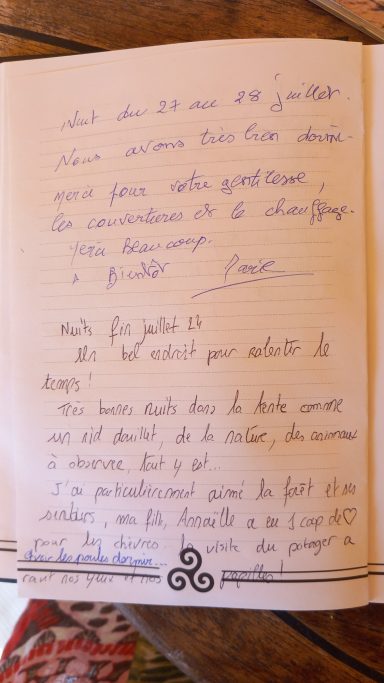 Nuit du 27 au 28 juillet.
Nous avons très bien dormi.
merci pour votre gentillesse,
les couvertures et le chauffage.
Merci Beaucoup.
A Bientôt Marie
Nuits fin juillet 24
Un bel endroit pour ralentir le
temps !
Très bonnes nuits dans la tente comme
un nid douillet, de la nature, des animaux
à observer, tout y est...
J'ai particulièrement aimé la forêt et ses
sentiers, ma fille, Annaëlle a eu 1 coup de ♡
pour les chèvres... la visite du potager a
avec les poules dormir...
nos yeux et nos papilles !